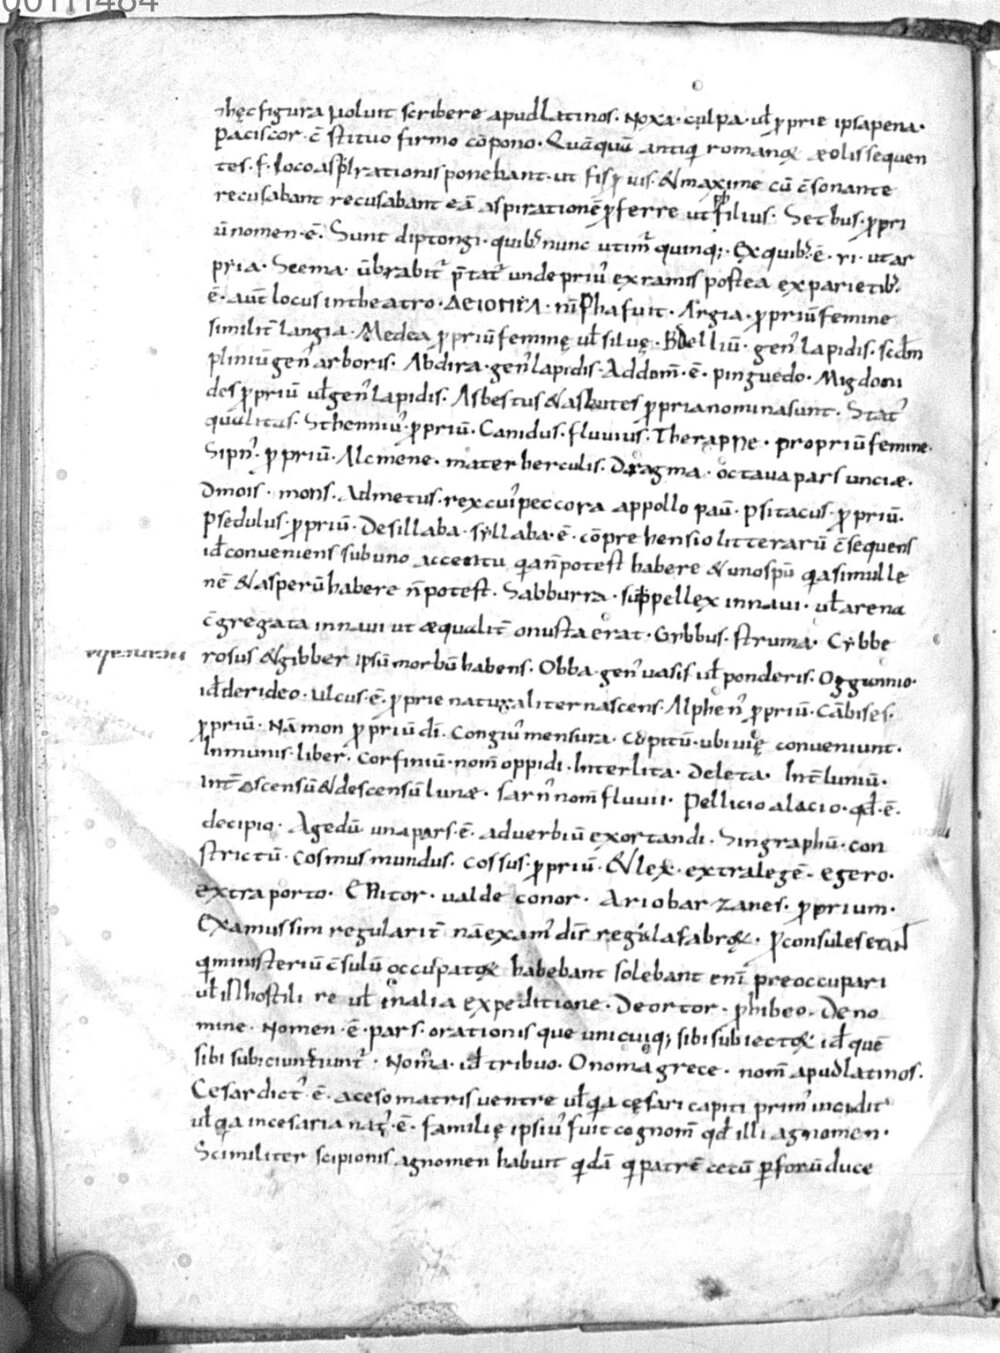 00111484
hęc figura voluit scribere apud latinos. Noxa. culpa. uł ꝓprie ipsa pena.
paciscor. c̄stituo firmo cōpono. Quāquū antiqi romanoꝝ æolis sequen
tes. f. loco asp̄irationis ponebant. ut fis ꝓ uis. & maxime cū c̄sonante
recusabant recusabant eā aspirationē ꝓferre ut filius. Setbus. ꝓpri
ū nomen. ē. Sunt diptongi. quibꝰ nunc utimꝛ quinq;. Ex quibꝰ. ē. yi. ut ar
pyia. Scema. ūbrabitꝛ p̄tatꝛ unde priuꝰ ex ramis postea ex parietibꝰ.
ē. aut̄ locus in theatro. nīpha fuit. Argia. ꝓpriū femine
similit̄ langia. Medea ꝓpriū feminę uł siluę. Bdelliū. genꝰ lapidis. scdm̄
pliniū genꝰ arboris. Abdira. genꝰ lapidis. Addom̄. ē. pinguedo. Migdoni
des ꝓpriū uł genꝰ lapidis. Asbestus & asbustes ꝓpria nomina sunt. Statꝰ
qualitas. Stheniuꝰ. ꝓpriū. Canidus. fluvius. Therapne. propriū femine.
Sipnꝰ. ꝓpriū. Alcmene. mater herculis. Dragma. octava pars unciæ.
Dmois. mons. Admetus. rex cuiꝰ peccora appollo pauī. Psitacus. ꝓpriū.
Psedulus. ꝓpriū. De sillaba. syllaba. ē. cōprehensio litterarū c̄sequens
id conveniens sub uno accentu qia n̄ potest habere & uno spū qia simul le
nē & asperū habere n̄ potest. Sabburra. suppellex in navi. uł arena
c̄gregata in navi ut æqualit̄ onusta erat. Gybbus. struma. Cybbe
rosus & gibber ipsū morbū habens. Obba. genꝰ vasis uł ponderis. Oggannio.
id derideo. Ulcus. ē. ꝓprie naturaliter nascens. Alphenꝰ ꝓpriū. Cābises.
ꝓpriū. Nāmon ꝓpriū di. Congiuꝰ mensura. Cōpitū. ubi vię conveniunt.
Inmunis. liber. Corfiniū. nom̄ oppidi. Interlita. Deleta. Int̄luniū.
int̄ ascensū & descensū lunæ. Sarnꝰ nom̄ fluvii. Pellicio a lacio. qd. ē.
decipio. Agedū una pars. ē. adverbiū exortandi. Singraphū. con
strictū. Cosmus mundus. Cossus. ꝓpriū. & lex. extra legē. Egero.
extra porto. Enitor. valde conor. Ariobarzanes. ꝓprium.
Examussim regularit̄ nā examꝰ dicit̄ regula fabroꝝ. ꝓconsules erant
qi ministeriū c̄sulū occupatoꝝ habebant solebant enī preoccupari
uł in hostili re uł in alia expeditione. Deortor. phibeo. De no
mine. Nomen. ē. pars. orationis que unicuiq; sibi subiectoꝝ id quē
sibi subiciuntꝛ. Noma. id tribuo. Onoma grece. nom̄ apud latinos.
Cesar dictꝰ. ē. a ceso matris ventre uł qia cęsari capiti primꝰ incidit
uł qia in cesaria natꝰ. ē. familię ipsiuꝰ fuit cognom̄ qd illi agnomen.
Scimiliter scipionis agnomen habuit qidā qi patrē cecū p forū duce